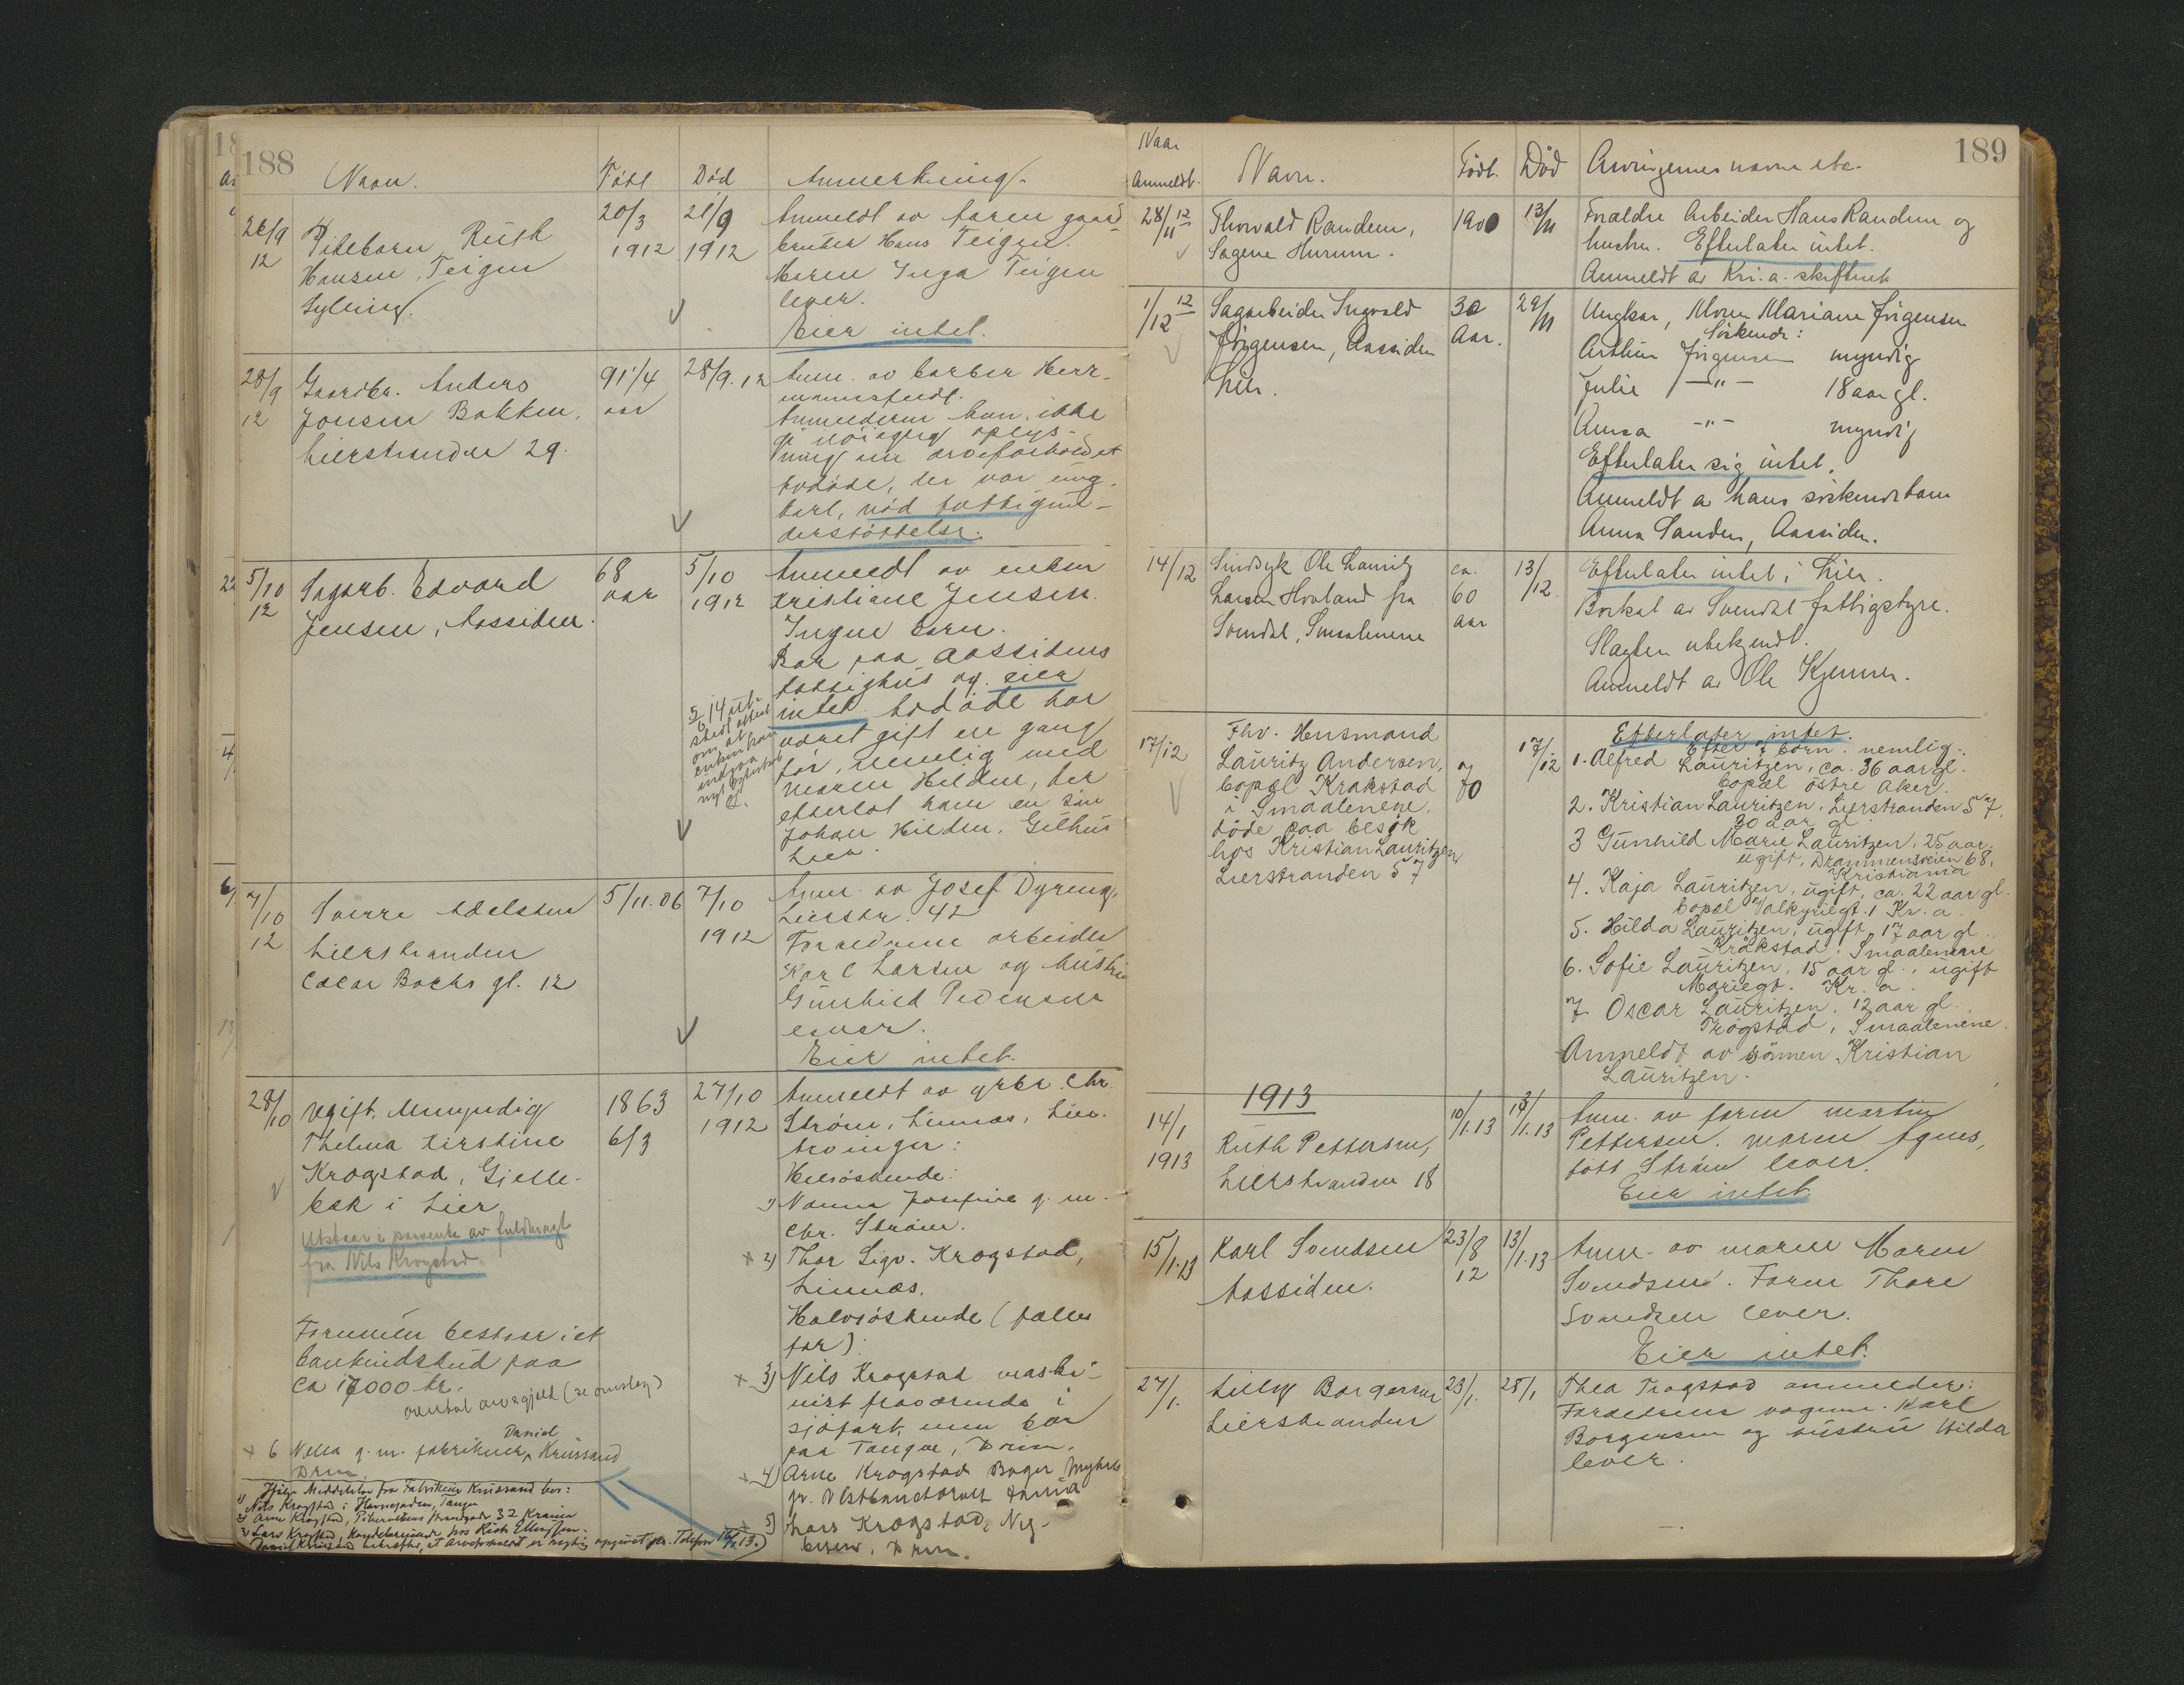 188
Navn.
Född
Död
Anmerkning.
26/9 12
Pikebarn Ruth
Hansen Teigen
Sylling.
20/3 1912
21/9 1912
Anmeldt av faren gaard-
bruker Hans Teigen.
Moren Inga Teigen
lever.
Eier intet.
28/9 12
Gaardbr. Anders
Jonsen Bakken,
Lierstranden 29.
91 1/4 aar
28/9. 12
Anm. av barber Herr-
mannsfeldt.
Anmelderen kan ikke
gi nöiagtig oplys-
ning om arveforholdet
Avdöde, der var ung-
karl, nöd fattigun-
derstöttelse.
5/10 12
Sagarb. Edvard
Jensen, Aassiden.
68 aar
5/10 1912
Anmeldt av enken
Kristiane Jensen.
Ingen barn.
Bor paa Aassidens
fattighus og eier
intet. Avdöde har
været gift en gang
för, nemlig med
Maren Hilden, der
efterlot ham en sön
Johan Hilden, Gilhus
Lier.
5/6 14 ut-
stedt attest
om at
enken kan
indgaa
nyt egteskab
7/10 12
Sverre Adelsten
Lierstranden
Carl Bachs gl. 12
5/11.06
7/10 1912
Anm. av Josef Dyreng,
Lierstr. 42
Forældrene arbeider
Karl Larsen og hustru
Gunhild Pedersen
lever.
Eier intet.
28/10
Ugift, Umyndig
Thelma Kirstine
Krogstad, Gjelle-
bæk i Lier
Utstaar i paavente av fuldmagt
fra Nils Krogstad
Formuen bestaar i et
bankindskud paa
ca 17000 kr.
1863 6/3
27/10 1912
Anmeldt av grbr. Chr.
Ström, Linnæs, Lier.
Arvinger:
Helsöskende:
1) Nanna Josefine g. m.
Chr. Ström.
x 2) Thor Sigv. Krogstad,
Linnæs.
Halvsöskende (fælles
far):
x 3) Nils Krogstad maski-
nist fraværende i
sjöfart, men bor
paa Tangen, Drm.
x 4) Arne Krogstad Bager
x 5) Lars Krogstad,
Drm.
x 6 Nella g. m. fabrikeier Daniel Knivsand
Drm
Ifölge Meddelelse fra Fabrikeier Knivsand bor:
1) Nils Krogstad i Havnegaden, Tangen
2) Arne Krogstad, Pitervikens Strandgade 32 Krania
3) Lars Krogstad, hos Kiös Ellingsen.
Daniel Knivsand bekræfter, at Arveforholdet er rigtig opgivet pr. Telefon 16/1 13.)
189
Naar
Anmeldt.
Navn.
Född.
Död
Arvingernes navne etc.
28/11 12
Thorvald Randem,
Sagene Hurum.
1900
13/11
Forældre Arbeider Hans Randem og
hustru. Efterlater intet.
Anmeldt av Kr.a. skifteret
1/12 12
Sagarbeider Ingvald
Jörgensen, Aassiden
Lier.
30 Aar.
29/11
Ungkar, Moren Mariane Jörgensen
Söskende:
Arthur Jörgensen myndig
Julie —"— 18 aar gl.
Anna —"— myndig
Efterlater sig intet.
Anmeldt a hans söskendebarn
Anna Sanden, Aassiden.
14/12
Sindsyk Ole Lauritz
Larsen Hovland fra
Svindal, Smaalenene
ca. 60 aar
13/12.
Efterlater intet i Lier.
Bortsat av Svindal fattigstyre.
Slagten ubekjendt.
Anmeldt av Ole Kjenner.
17/12
Fhv. Husmand
Lauritz Andersen,
bopæl Krakstad
i Smaalenene,
döde paa besök
hos Kristian Lauritzen
Lierstranden 57
70
17/12
Efterlater intet.
Efter 7 börn: nemlig:
1. Alfred Lauritzen, ca. 36 aar gl.
bopæl östre Aker
2. Kristian Lauritzen, Lierstranden 57,
30 aar gl
3 Gunhild Marie Lauritzen, 25 aar,
ugift, Drammensveien 68,
Kristiania
4. Kaja Lauritzen, ugift, ca. 22 aar gl.
bopæl Valkyriegt. 1 Kr. a.
5. Hilda Lauritzen, ugift, 17 aar gl.
Kråkstad. Smaalenene
6. Sofie Lauritzen, 15 aar gl., ugift
Mariegt. Kr. a.
7. Oscar Lauritzen, 12 aar gl.
Trögstad, Smaalenene.
Anmeldt av sönnen Kristian
Lauritzen.
1913
14/1 1913
Ruth Pettersen,
Lierstranden 18
10/1.13
13/1.13
Anm. av faren Martin
Pettersen. Moren Agnes,
född Ström lever.
Eier intet.
15/1.13
Karl Svendsen
Aassiden.
23/8 12
13/1.13
Anm. av moren Maren
Svendsen. Faren Thore
Svendsen lever.
Eier intet.
27/1.
Lilly Borgersen
Lierstranden
23/1.
25/1
Thea Trogstad anmelder:
Forældrene vognm. Karl
Borgersen og hustru Hilda
lever.